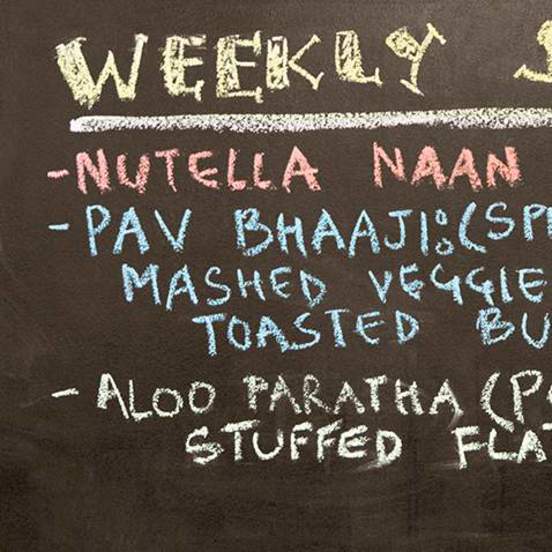 WEEKLY S
-NUTELLA NAAN
-PAV BHAAJI:(SP
MASHED VEGGIE
TOASTED BU
- ALOO PARATHA (PO
STUFFED FLAT